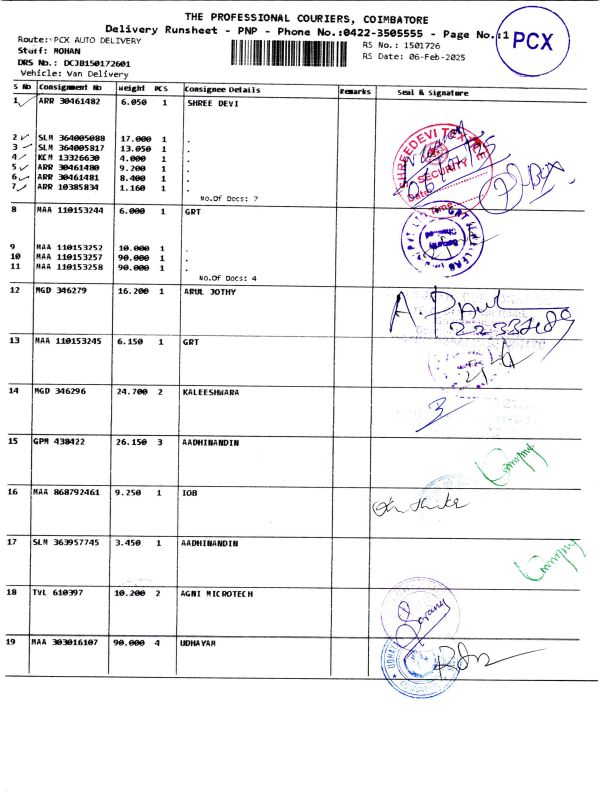 THE PROFESSIONAL COURIERS, COIMBATORE
Delivery Runsheet - PNP - Phone No.:0422-3505555 - Page No.:1
PCX
Route: PCX AUTO DELIVERY
RS No.: 1501726
Staff: MOHAN
RS Date: 06-Feb-2025
DRS No.: DCJB150172601
Vehicle: Van Delivery
S No Consignment No Weight PCS Consignee Details Remarks Seal & Signature
1 ARR 30461482 6.050 1 SHREE DEVI
2 SLM 364005088 17.000 1 .
3 SLM 364005817 13.050 1 .
4 KCM 13326630 4.000 1 .
5 ARR 30461480 9.200 1 .
6 ARR 30461481 8.400 1 .
7 ARR 10385834 1.160 1 .
No.Of Docs: 7
SHREEDEVI TEXTILE
SECURITY
Date:
Time:
8 MAA 110153244 6.000 1 GRT
9 MAA 110153252 10.000 1 .
10 MAA 110153257 90.000 1 .
11 MAA 110153258 90.000 1 .
No.Of Docs: 4
GRT JEWELLERS
Security
Checked
12 MGD 346279 16.200 1 ARUL JOTHY
A. Paul
13 MAA 110153245 6.150 1 GRT
14 MGD 346296 24.700 2 KALEESHWARA
15 GPM 438422 26.150 3 AADHINANDIN
16 MAA 868792461 9.250 1 IOB
17 SLM 363957745 3.450 1 AADHINANDIN
18 TVL 610397 10.200 2 AGNI MICROTECH
19 MAA 303016107 90.000 4 UDHAYAM